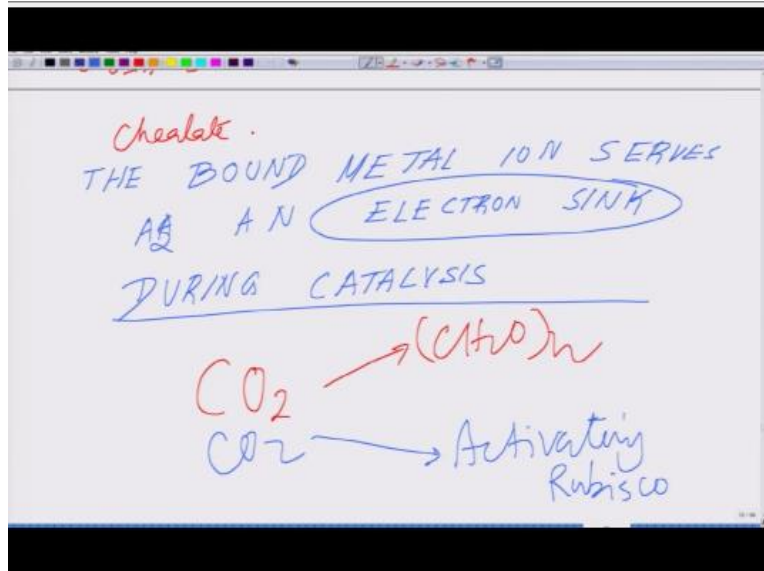 Chealate.
THE BOUND METAL ION SERVES
AS AN ELECTRON SINK
DURING CATALYSIS
CO2 → (CH2O)n
CO2 → Activating
Rubisco